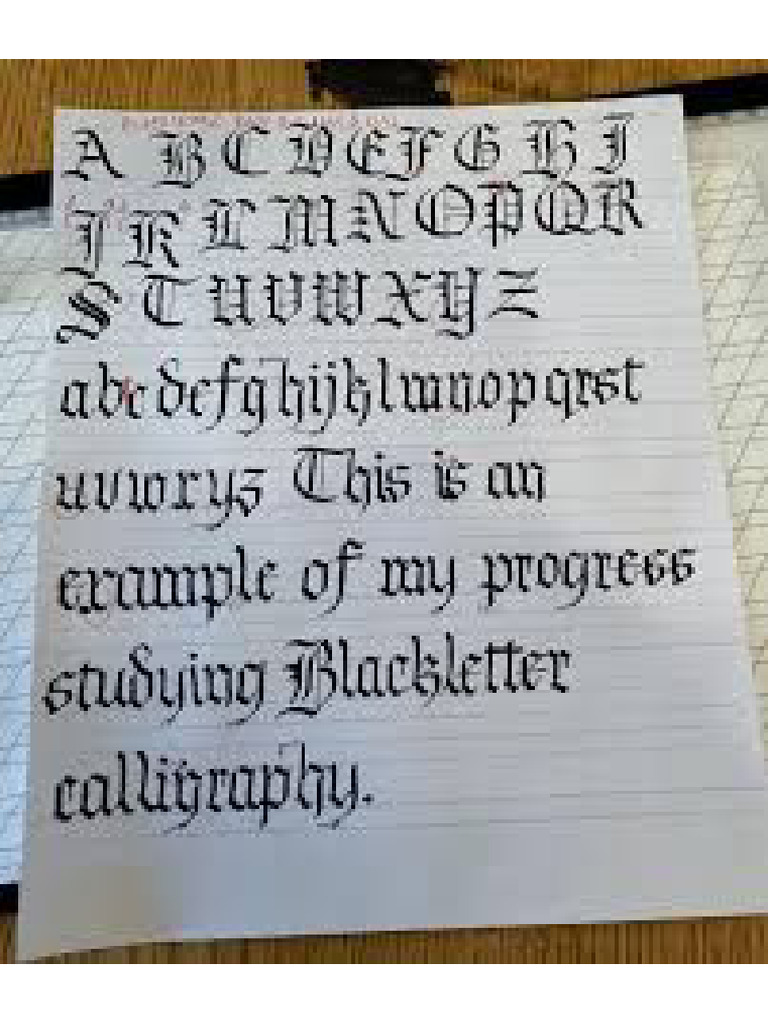 A B C D E F G H I
J K L M N O P Q R
S T U V W X Y Z
abcdefghijklmnopqrst
uvwxyz This is an
example of my progress
studying Blackletter
calligraphy.